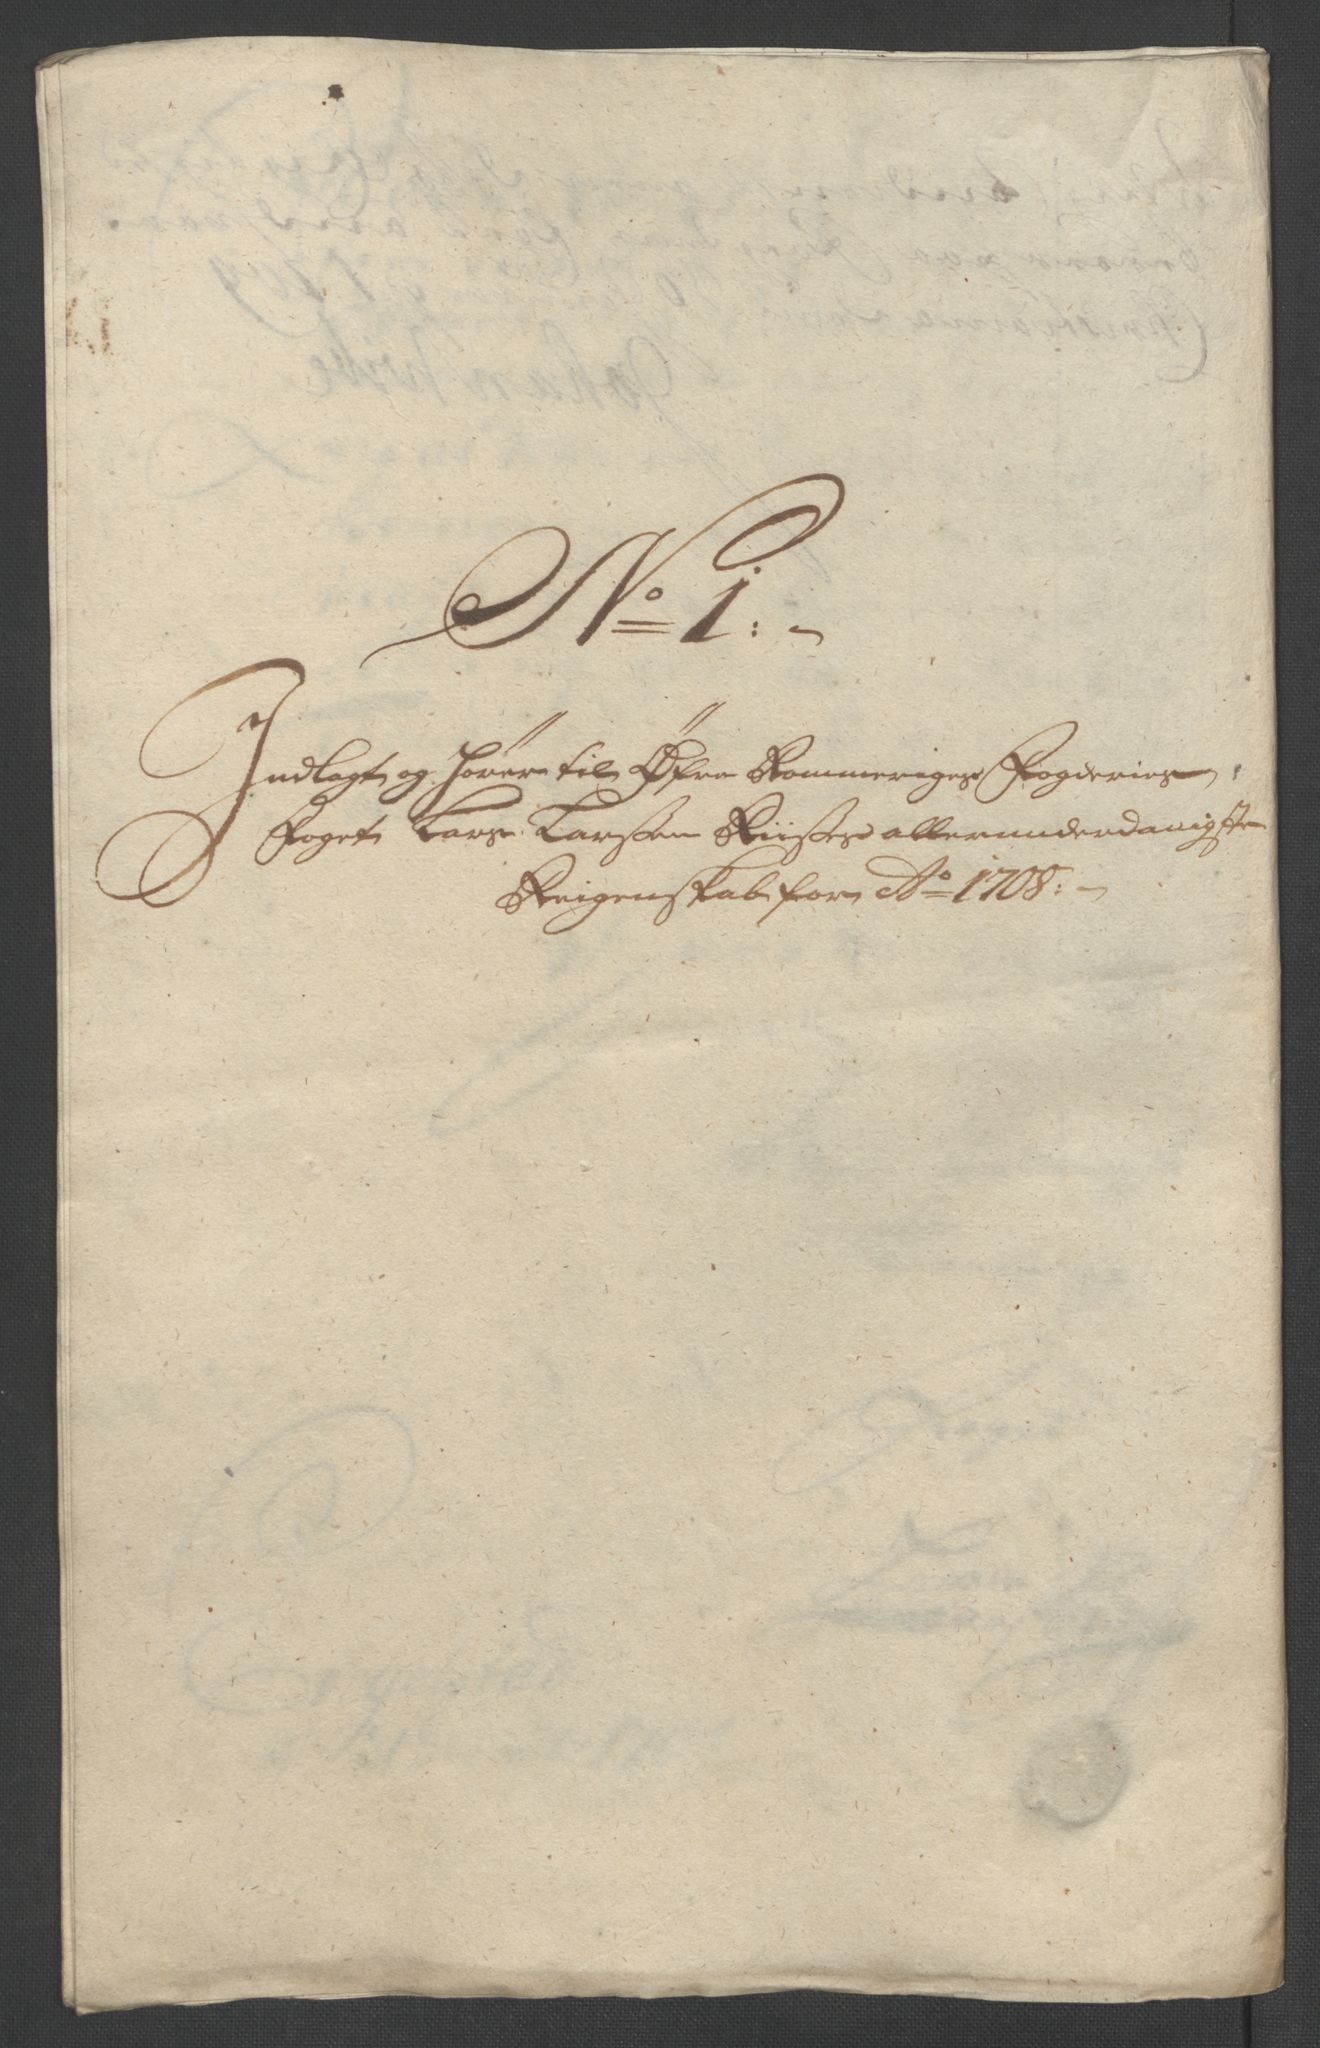 No 1:
Indlagt og hører til Øfre Rommeriges Fogderies
Foget Lars Larssen Riises allerunderdanigste
Reigenskab for Ao 1708: